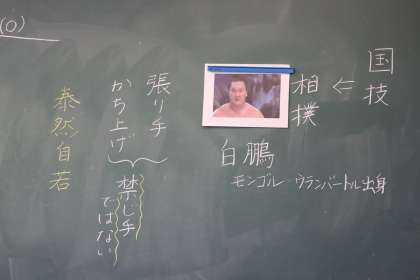 (0)
国技
⇐
相撲
白鵬
モンゴル ウランバートル出身
張り手
かち上げ
禁じ手
ではない
泰然自若